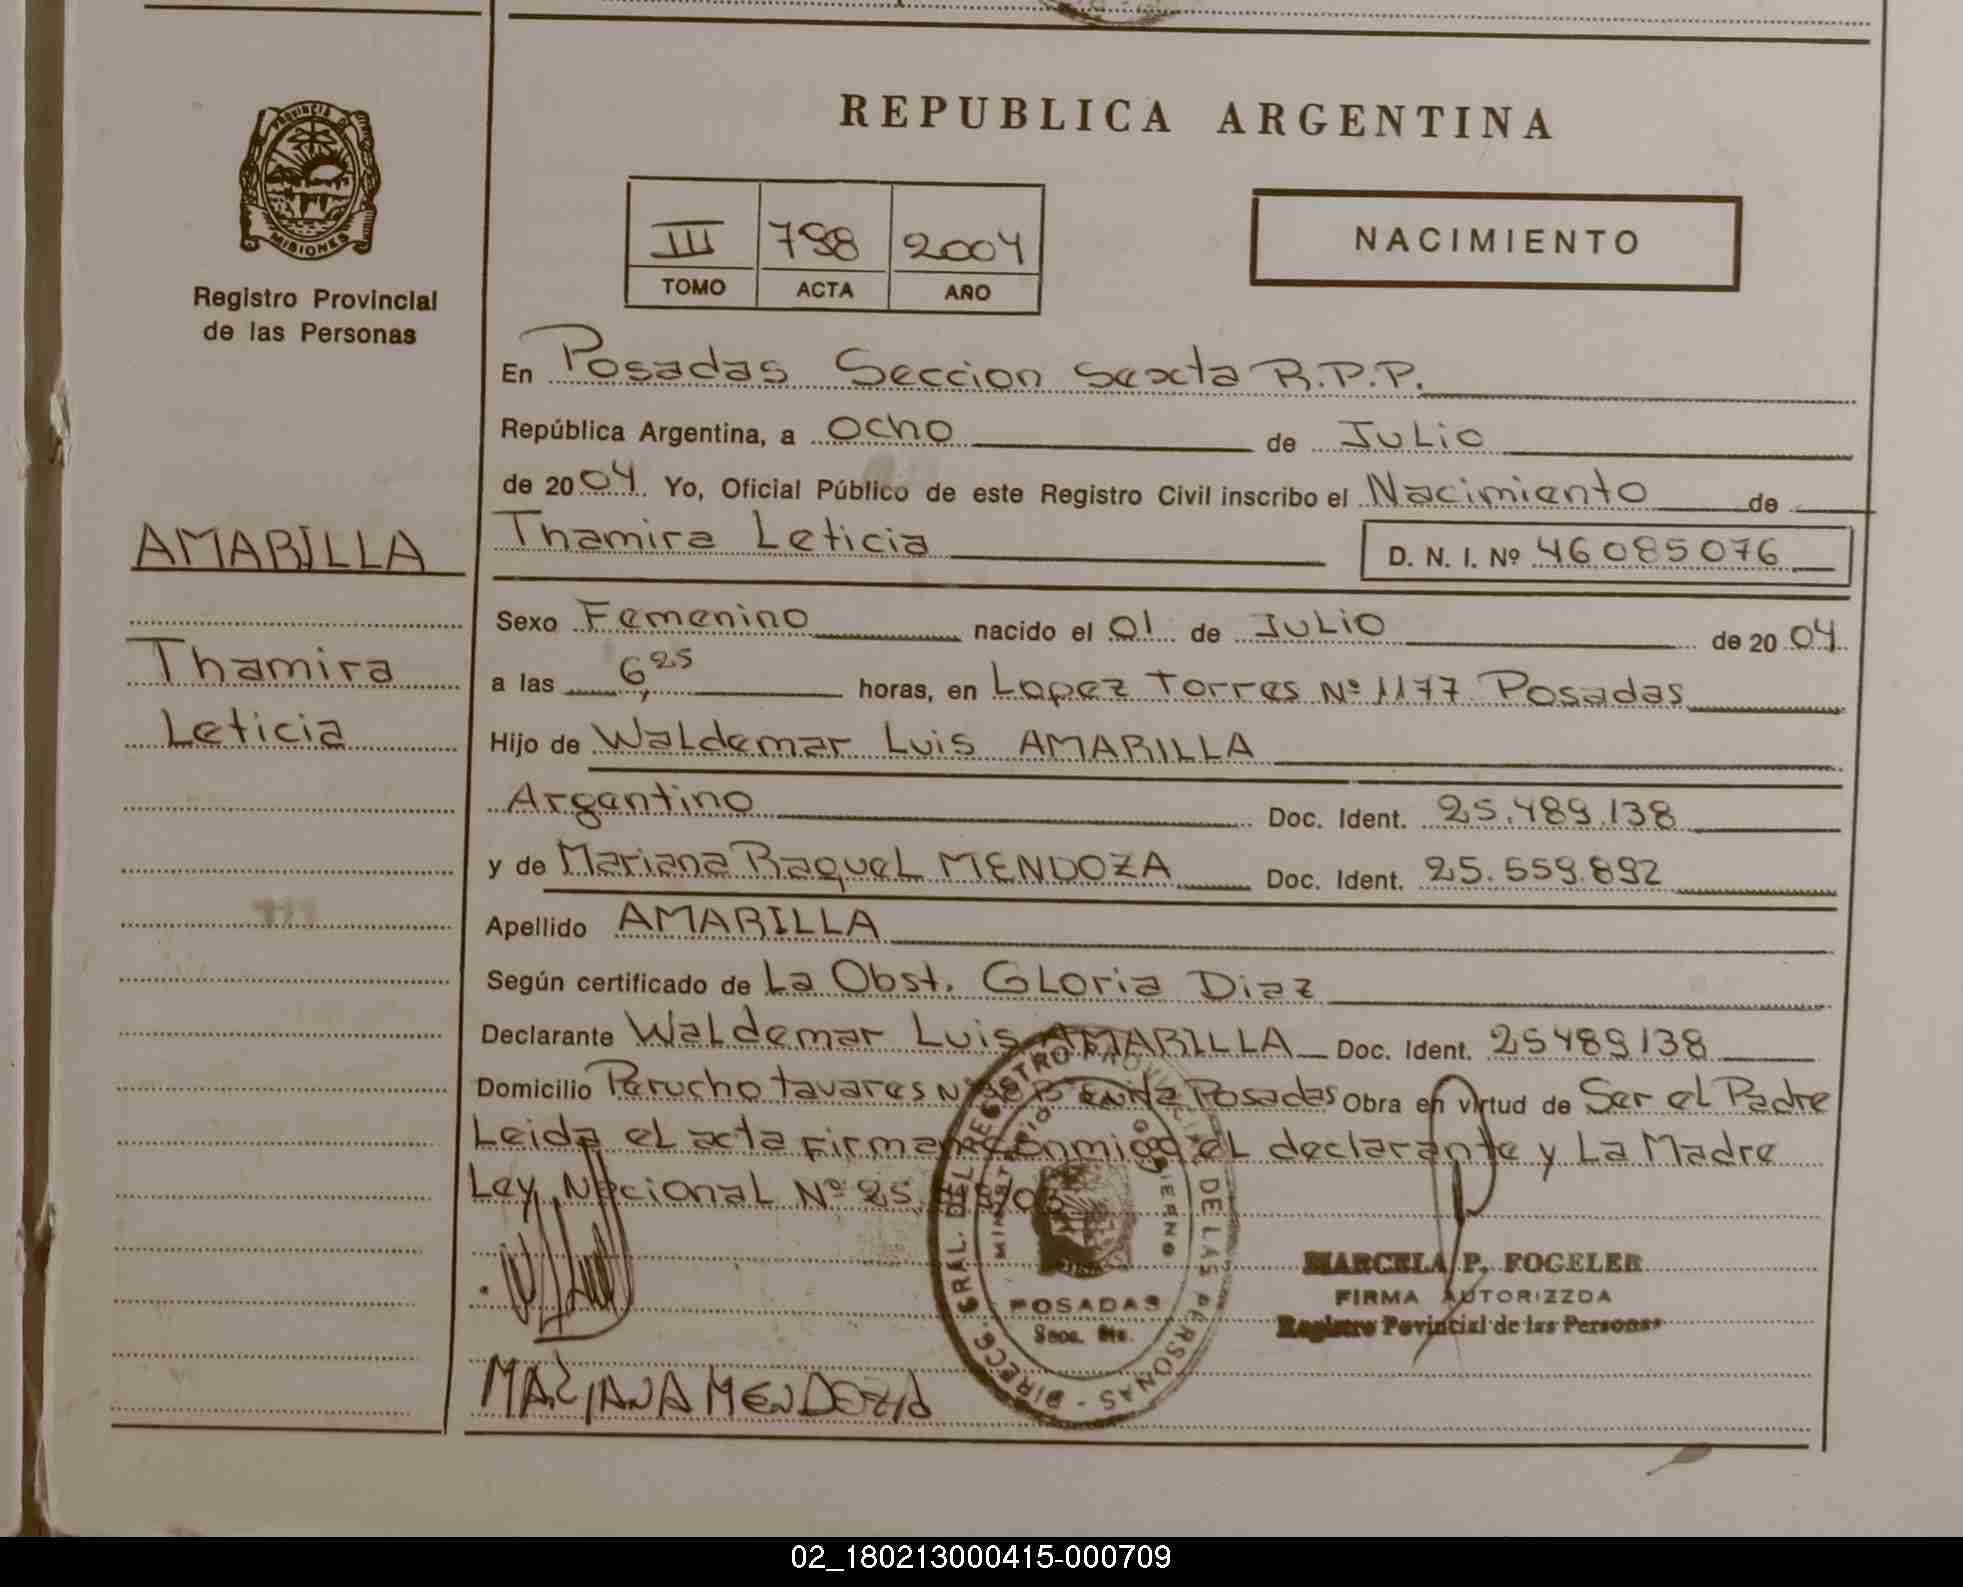 REPUBLICA ARGENTINA
PROVINCIA DE MISIONES
Registro Provincial
de las Personas
III 798 2004
TOMO ACTA AÑO
NACIMIENTO
En Posadas Seccion Sexta R.P.P.
República Argentina, a Ocho de Julio
de 2004. Yo, Oficial Público de este Registro Civil inscribo el Nacimiento de
AMARILLA
Thamira
Leticia
Thamira Leticia D. N. I. Nº 46085076
Sexo Femenino nacido el 01 de Julio de 2004
a las 6,25 horas, en Lopez Torres Nº 1177 Posadas
Hijo de Waldemar Luis AMARILLA
Argentino Doc. Ident. 25.489.138
y de Mariana Raquel MENDOZA Doc. Ident. 25.559.892
Apellido AMARILLA
Según certificado de La Obst. Gloria Diaz
Declarante Waldemar Luis AMARILLA Doc. Ident. 25489138
Domicilio Perucho tavares Posadas Obra en virtud de Ser el Padre
Leida el acta firman conmigo el declarante y La Madre
Ley Nacional Nº 25.
DIRECC. GRAL. DEL REGISTRO PROVINCIAL DE LAS PERSONAS
MINISTERIO GOBIERNO
POSADAS
MARCELA P. FOGELER
FIRMA AUTORIZZDA
Registro Povincial de las Personas
MARIANA MENDOZA
02_180213000415-000709